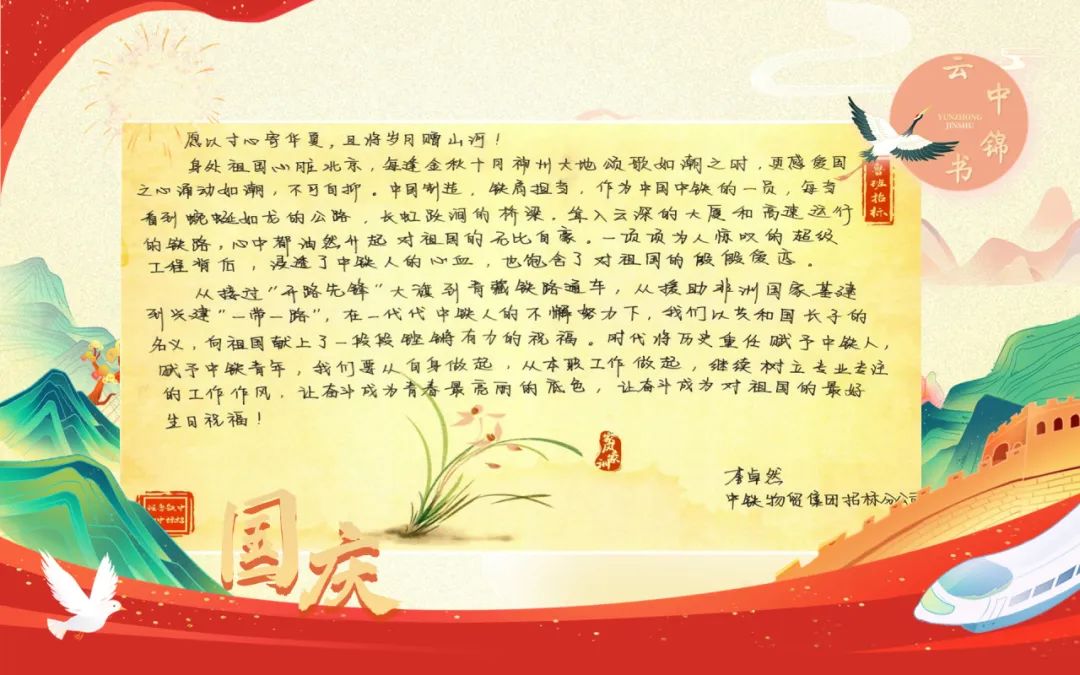 云中锦书
YUNZHONG
JINSHU
鲁班招标
愿以寸心寄华夏，且将岁月赠山河！
身处祖国心脏北京，每逢金秋十月神州大地颂歌如潮之时，更感爱国
之心涌动如潮，不可自抑。中国制造，铁肩担当，作为中国中铁的一员，每当
看到蜿蜒如龙的公路，长虹跨涧的桥梁，耸入云深的大厦和高速运行
的铁路，心中都油然升起对祖国的无比自豪。一项项为人惊叹的超级
工程背后，浸透了中铁人的心血，也饱含了对祖国的殷殷爱恋。
从接过“开路先锋”大旗到青藏铁路通车，从援助非洲国家基建
到兴建“一带一路”，在一代代中铁人的不懈努力下，我们以共和国长子的
名义，向祖国献上了一段段铿锵有力的祝福。时代将历史重任赋予中铁人，
赋予中铁青年，我们要从自身做起，从本职工作做起，继续树立专业专注
的工作作风，让奋斗成为青春最亮丽的底色，让奋斗成为对祖国的最好
生日祝福！
李卓然
中铁物贸集团招标分公司
国庆